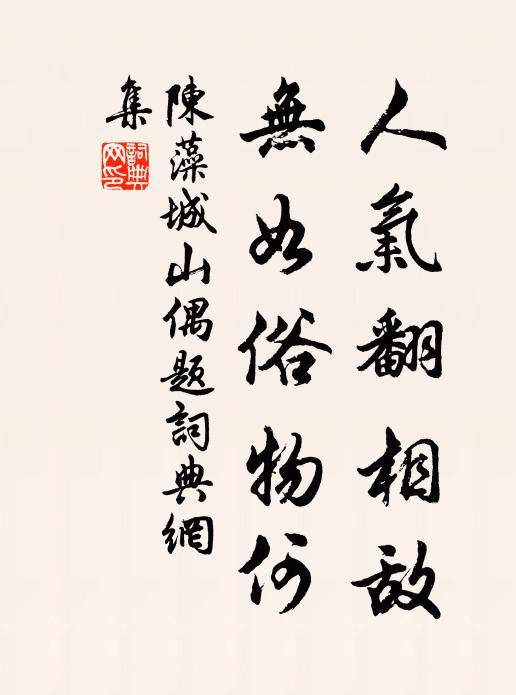 人氣翻相敌
無如俗物何
陳藻城山偶題詞典網
集
詞典
网印